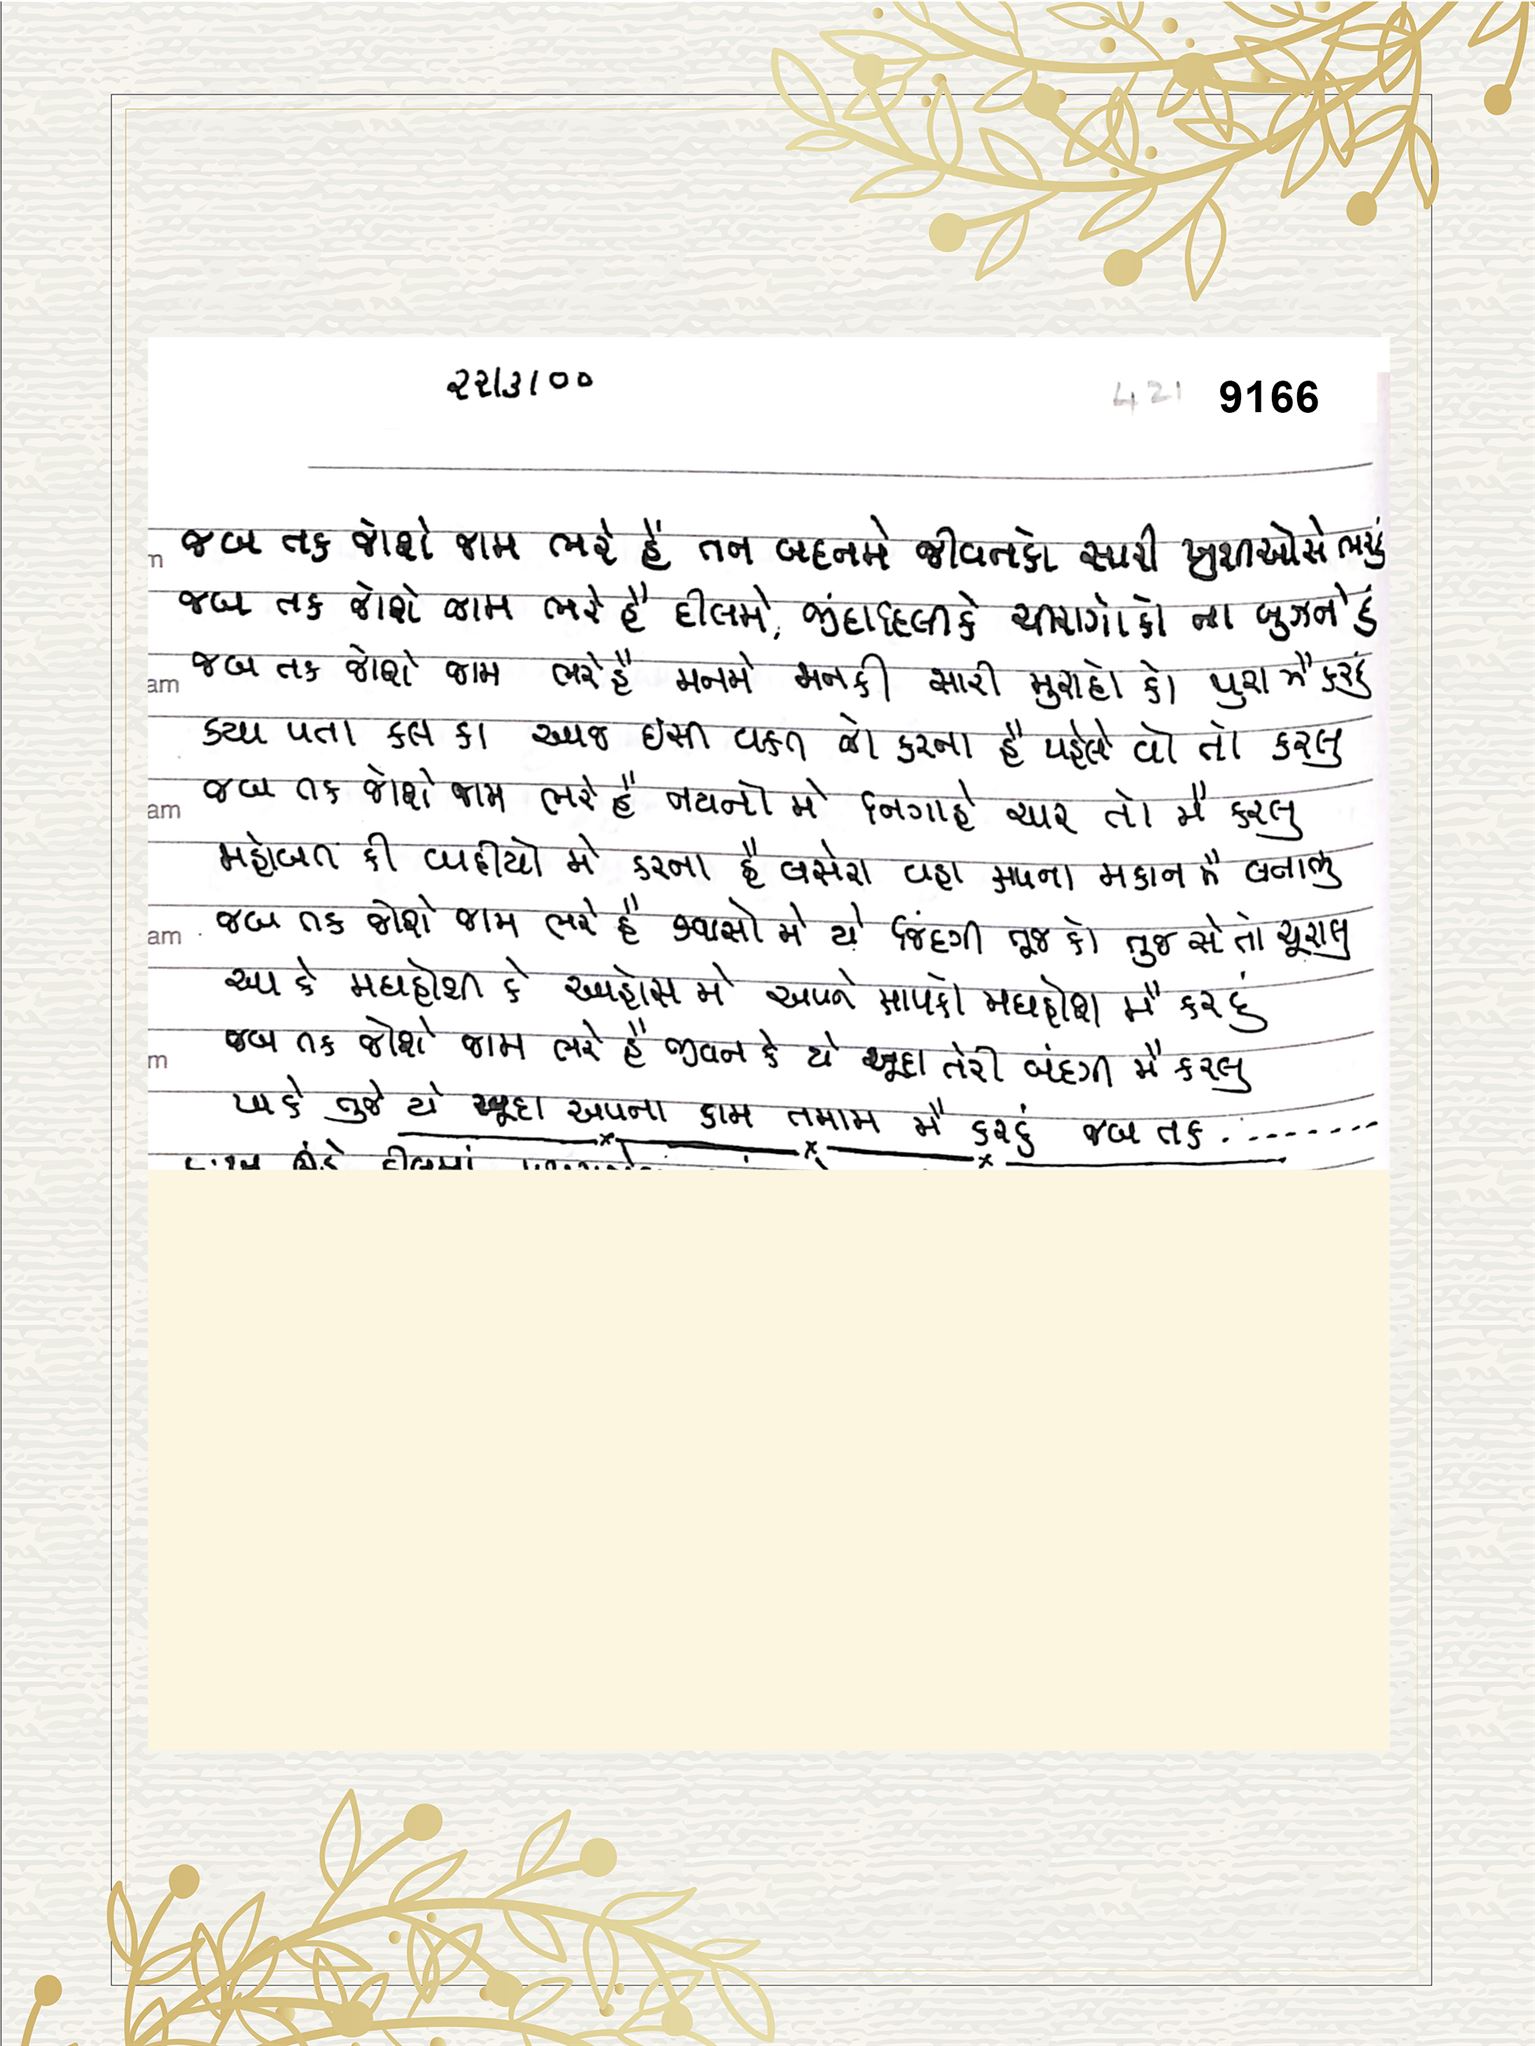 ૨૨/૩/૦૦
421 9166
જબ તક જોશે જામ ભરે હૈ તન બદનમે જીવનકો સારી ખુશીઓસે ભરદું
જબ તક જોશે જામ ભરે હૈ દીલમે, જીંદાદિલીકે ચીરાગોકો ના બુઝને દું
am જબ તક જોશે જામ ભરે હૈ મનમે મનકી સારી મુરાદો કો પુરા મૈ કરદું
ક્યા પતા કલ કા આજ ઇસી વક્ત જો કરના હૈ પહેલે વો તો કરલુ
am જબ તક જોશે જામ ભરે હૈ નયનો મે નિગાહે ચાર તો મૈ કરલુ
મહોબત કી વાદીયો મે કરના હૈ બસેરા વહા અપના મકાન મૈ બનાલુ
am જબ તક જોશે જામ ભરે હૈ શ્વાસો મે યે જિંદગી તૂજ કો તુજ સે તો ચૂરાલુ
આ કે મદહોશી કે આહોસ મે અપને આપકો મદહોશ મૈ કરદું
m જબ તક જોશે જામ ભરે હૈ જીવન કે યે ખૂદા તેરી બંદગી મૈ કરલુ
પા કે તુજે યે ખૂદા અપના કામ તમામ મૈ કરદું જબ તક .......